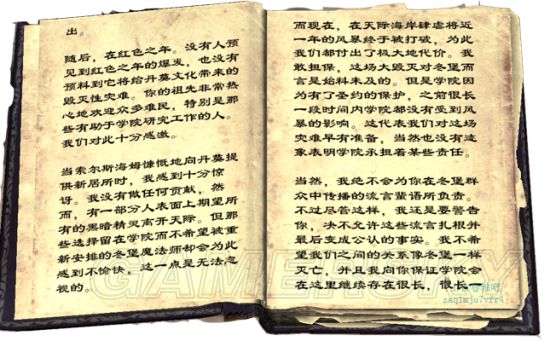 出。
随后，在红色之年。没有人预
见到红色之年的爆发，也没有
预料到它将给丹莫文化带来的
毁灭性灾难。你的祖先非常热
心地欢迎众多难民，特别是那
些有助于学院研究工作的人。
我们对此十分感激。
当索尔斯海姆慷慨地向丹莫提
供新居所时，我感到十分惊
讶。我没有做任何贡献，然
而，有一部分人表面上期望所
有的黑暗精灵离开天际。但那
些选择留在学院而不希望被重
新安排的冬堡魔法师却会为此
感到不愉快，这一点是无法忽
视的。
而现在，在天际海岸肆虐将近
一年的风暴终于被打破，为此
我们都付出了极大地代价。我
敢担保，这场大毁灭对冬堡而
言是始料未及的。但是学院因
为有了圣约的保护，之前很长
一段时间内学院都没有受到风
暴的影响。这代表我们对这场
灾难早有准备，当然也没有迹
象表明学院承担着某些责任。
当然，我绝不会为你在冬堡群
众中传播的流言蜚语所负责。
不过尽管这样，我还是要警告
你，决不允许这些流言扎根并
最后变成公认的事实。我不希
望我们之间的关系像冬堡一样
灭亡，并且我向你保证学院会
在这里继续存在很长，很长一
GAMERSKY
zaq1mju7vfr4